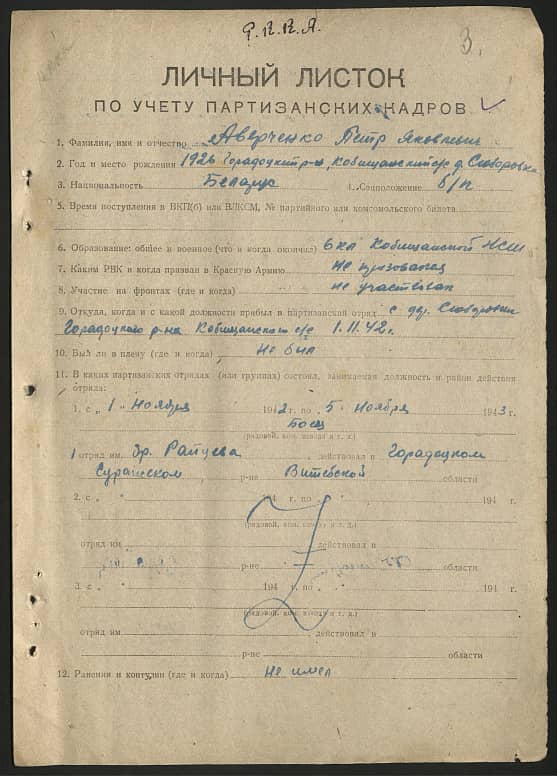 Р.К.К.А.
3.
ЛИЧНЫЙ ЛИСТОК
ПО УЧЕТУ ПАРТИЗАНСКИХ КАДРОВ
1. Фамилия, имя и отчество Аверченко Петр Яковлевич
2. Год и место рождения 1926 Горадоцкий р-н, Кобищанский с/с д.
3. Национальность Беларус 4. Соцположение б/п
5. Время поступления в ВКП(б) или ВЛКСМ, № партийного или комсомольского билета
6. Образование: общее и военное (что и когда окончил) 6 кл Кобищанской НСШ
7. Каким РВК и когда призван в Красную Армию Не призовался
8. Участие на фронтах (где и когда) не участвовал
9. Откуда, когда и с какой должности прибыл в партизанский отряд с дер.
Горадоцкого р-на Кобищанского с/с 1.11.42 г.
10. Был ли в плену (где и когда) Не был
11. В каких партизанских отрядах (или группах) состоял, занимаемая должность и район действия
отряда:
1. с „ 1 „ Ноября 1942 г. по „ 5 „ Ноября 1943 г.
Боец
(рядовой, ком. взвода и т. д.)
1 отряд им. бр. Райцева, действовал в Горадоцком
Суражском р-не Витебской области
2. с „ „ 194 г. по „ „ 194 г.
(рядовой, ком. взвода и т. д.)
отряд им действовал в
р-не области
3. с „ „ 194 г. по „ „ 194 г.
(рядовой, ком. взвода и т. д.)
отряд им , действовал в
р-не области
12. Ранения и контузии (где и когда) Не имел